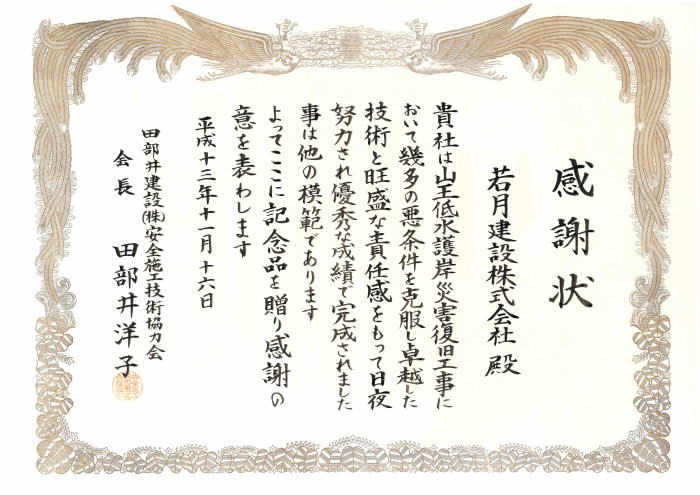 感謝状
若月建設株式会社 殿
貴社は山王低水護岸災害復旧工事に
おいて幾多の悪条件を克服し卓越した
技術と旺盛な責任感をもって日夜
努力され優秀な成績で完成されました
事は他の模範であります
よってここに記念品を贈り感謝の
意を表わします
平成十三年十一月十六日
田部井建設(株)安全施工技術協力会
会長 田部井洋子